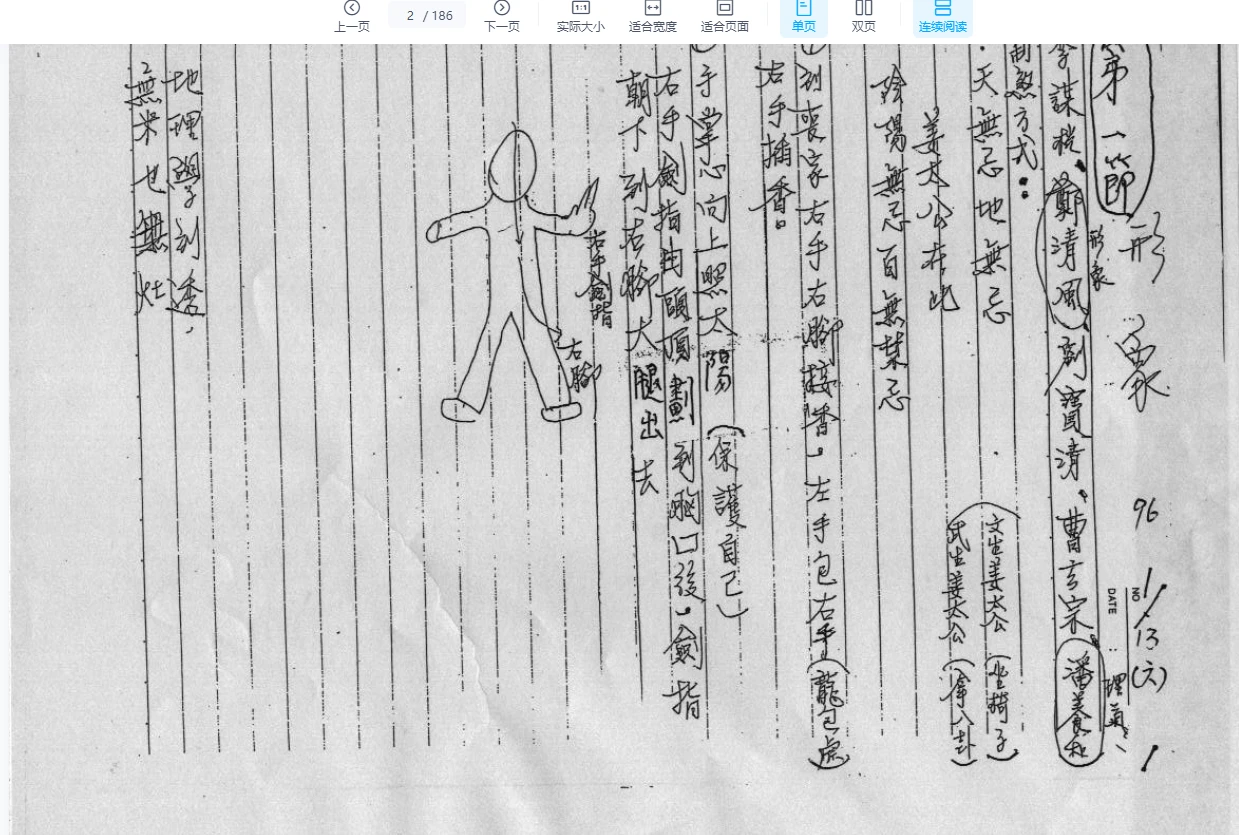 上一页
2 / 186
下一页
1:1
实际大小
适合宽度
适合页面
单页
双页
连续阅读
96 1/13 (六)
NO
DATE
1
第一節 形家
形象
理氣、
李謀稅、鄭清風、劉寶清、曹玄宗、潘養和
制煞方式：
天無忌 地無忌
文生姜太公(坐椅子)
姜太公在此
武生姜太公(拿八卦)
陰陽無忌百無禁忌
到喪家右手右腳接香。左手包右手(龍包虎)
右手插香。
手掌心向上照太陽(保護自己)
右手劍指由頭頂劃到胸口後，劍指
朝下到右腳大腿出去
右手劍指
右腳
地理學到透，
無米也無灶